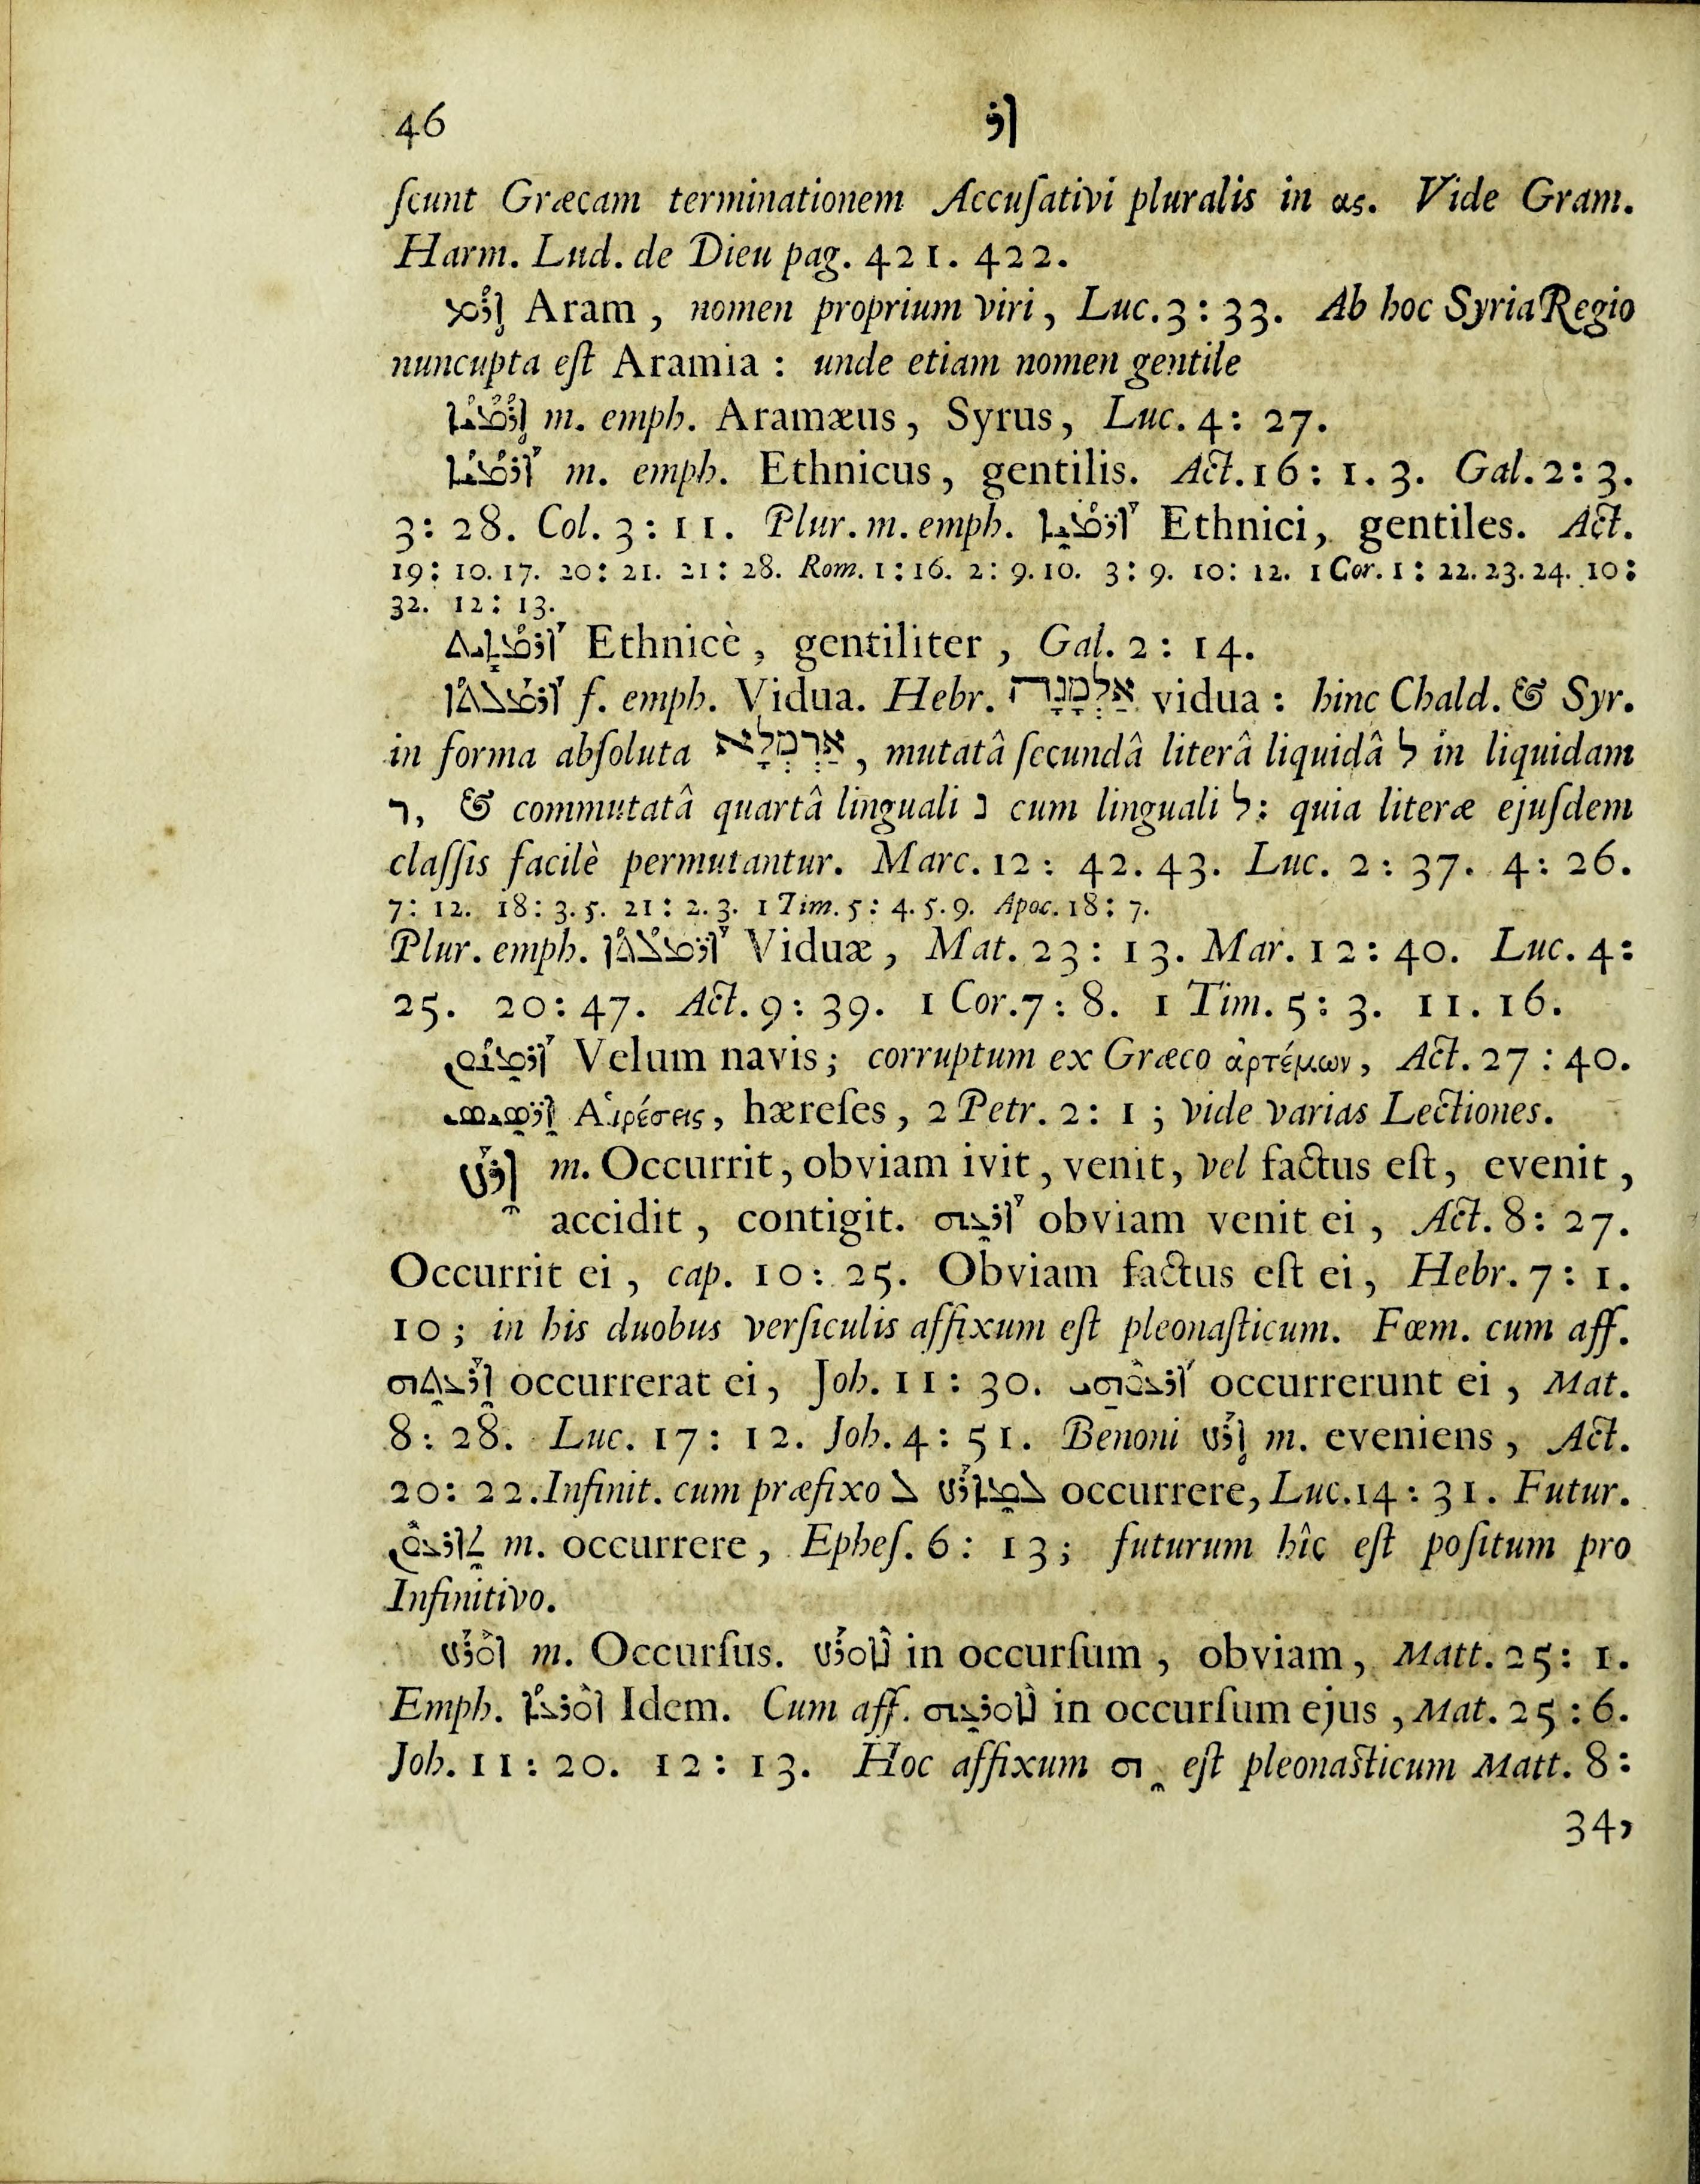 46 ܐܪ
ſcunt Græcam terminationem Accuſativi pluralis in ας. Vide Gram.
Harm. Lud. de Dieu pag. 421. 422.
ܐܪܡ Aram, nomen proprium viri, Luc. 3: 33. Ab hoc Syria Regio
nuncupta eſt Aramia: unde etiam nomen gentile
ܐܪܡܝܐ m. emph. Aramæus, Syrus, Luc. 4: 27.
ܐܪܡܝܐ m. emph. Ethnicus, gentilis. Act. 16: 1. 3. Gal. 2: 3.
3: 28. Col. 3: 11. Plur. m. emph. ܐܪ̈ܡܝܐ Ethnici, gentiles. Act.
19: 10. 17. 20: 21. 21: 28. Rom. 1: 16. 2: 9. 10. 3: 9. 10: 12. 1 Cor. 1: 22. 23. 24. 10:
32. 12: 13.
ܐܪܡܐܝܬ Ethnicè, gentiliter, Gal. 2: 14.
ܐܪܡܠܬܐ f. emph. Vidua. Hebr. אַלְמָנָה vidua: hinc Chald. & Syr.
in forma abſoluta אַרְמְלָא, mutatâ ſecundâ literâ liquidâ ל in liquidam
ר, & commutatâ quartâ linguali נ cum linguali ל: quia literæ ejuſdem
claſſis facilè permutantur. Marc. 12: 42. 43. Luc. 2: 37. 4: 26.
7: 12. 18: 3. 5. 21: 2. 3. 1 Tim. 5: 4. 5. 9. Apoc. 18: 7.
Plur. emph. ܐܪ̈ܡܠܬܐ Viduæ, Mat. 23: 13. Mar. 12: 40. Luc. 4:
25. 20: 47. Act. 9: 39. 1 Cor. 7: 8. 1 Tim. 5: 3. 11. 16.
ܐܪܡܢܘܢ Velum navis; corruptum ex Græco ἀρτέμων, Act. 27: 40.
ܐܪ̈ܣܝܣ Αἱρέσεις, hæreſes, 2 Petr. 2: 1; vide varias Lectiones.
ܐܪܥ m. Occurrit, obviam ivit, venit, vel factus eſt, evenit,
accidit, contigit. ܐܪܥܗ obviam venit ei, Act. 8: 27.
Occurrit ei, cap. 10: 25. Obviam factus eſt ei, Hebr. 7: 1.
10; in his duobus verſiculis affixum eſt pleonaſticum. Fœm. cum aff.
ܐܪܥܬܗ occurrerat ei, Joh. 11: 30. ܐܪܥܘܗܝ occurrerunt ei, Mat.
8: 28. Luc. 17: 12. Joh. 4: 51. Benoni ܐܪܥ m. eveniens, Act.
20: 22. Infinit. cum præfixo ܠ ܠܡܐܪܥ occurrere, Luc. 14: 31. Futur.
ܬܐܪܥܘܢ m. occurrere, Epheſ. 6: 13; futurum hîc eſt poſitum pro
Infinitivo.
ܐܘܪܥ m. Occurſus. ܠܐܘܪܥ in occurſum, obviam, Matt. 25: 1.
Emph. ܐܘܪܥܐ Idem. Cum aff. ܠܐܘܪܥܗ in occurſum ejus, Mat. 25: 6.
Joh. 11: 20. 12: 13. Hoc affixum ܗ eſt pleonaſticum Matt. 8:
34,